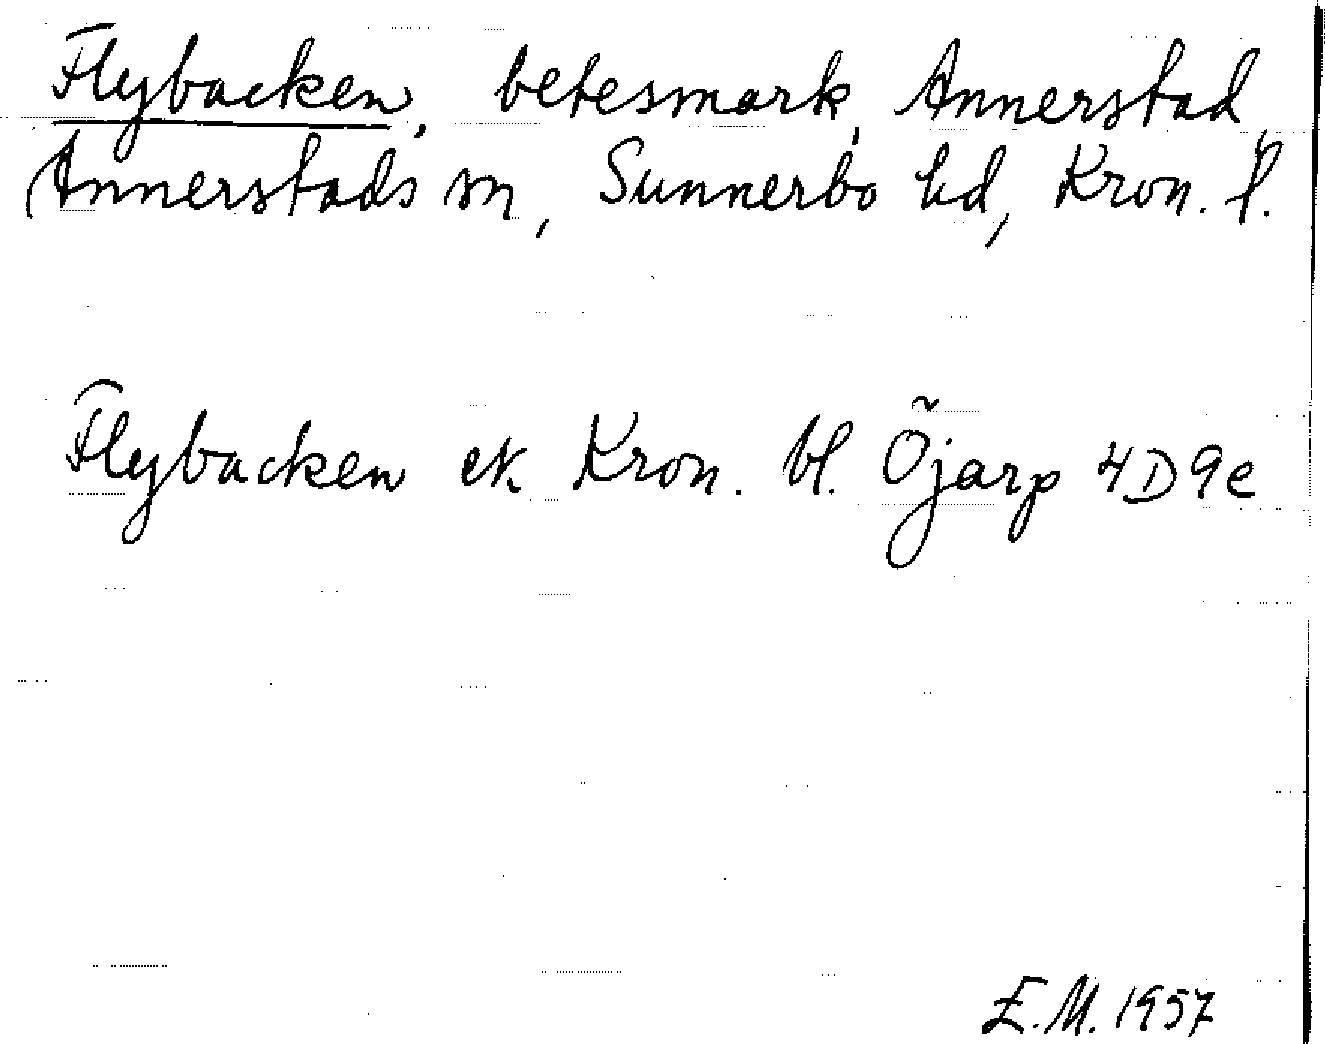 Flybacken, betesmark, Annerstad
Annerstads sn, Sunnerbo hd, Kron. l.
Flybacken ek Kron. bl. Öjarp 4D9e
E.M. 1957